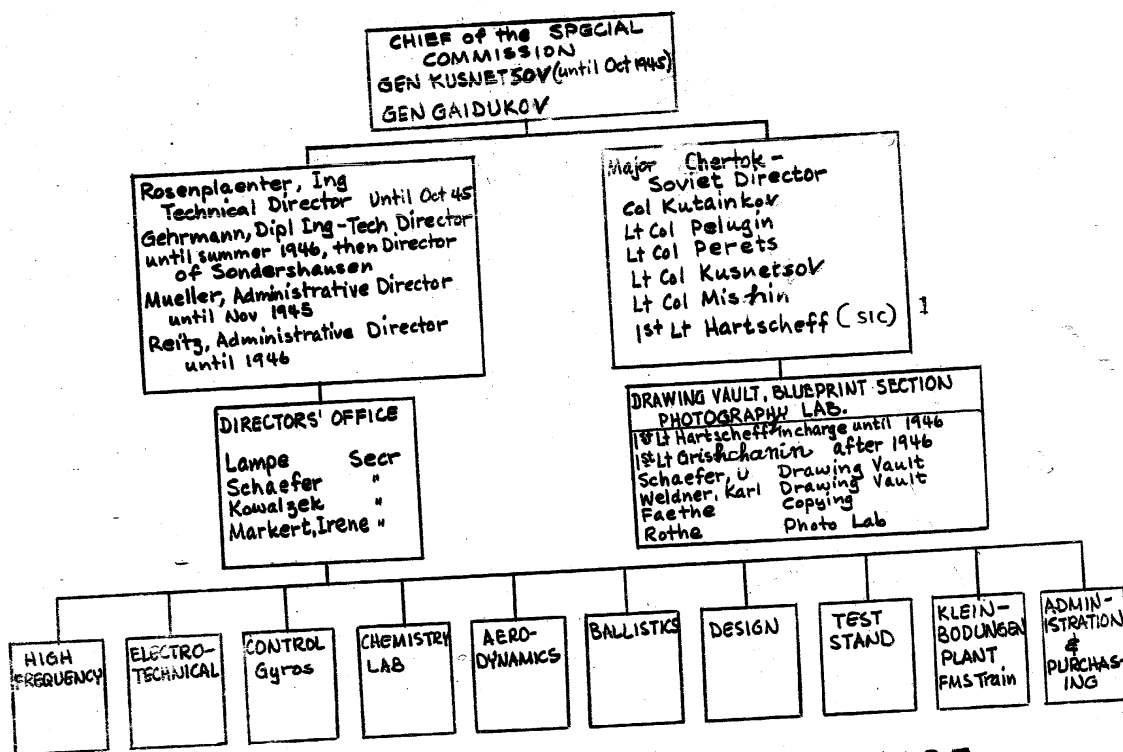 CHIEF of the SPECIAL
COMMISSION
GEN KUSNETSOV (until Oct 1945)
GEN GAIDUKOV
Rosenplaenter, Ing
Technical Director Until Oct 45
Gehrmann, Dipl Ing-Tech Director
until summer 1946, then Director
of Sondershausen
Mueller, Administrative Director
until Nov 1945
Reitz, Administrative Director
until 1946
Major Chertok -
Soviet Director
Col Kutainkov
Lt Col Pelugin
Lt Col Perets
Lt Col Kusnetsov
Lt Col Mishin
1st Lt Hartscheff (SIC)
DIRECTORS' OFFICE
Lampe Secr
Schaefer "
Kowalzek "
Markert, Irene "
DRAWING VAULT, BLUEPRINT SECTION
PHOTOGRAPHY LAB.
1st Lt Hartscheff incharge until 1946
1st Lt Grishchanin after 1946
Schaefer, U Drawing Vault
Weldner, Karl Drawing Vault
Faethe Copying
Rothe Photo Lab
HIGH
FREQUENCY
ELECTRO-
TECHNICAL
CONTROL
Gyros
CHEMISTRY
LAB
AERO-
DYNAMICS
BALLISTICS
DESIGN
TEST
STAND
KLEIN-
BODUNGEN
PLANT
FMS Train
ADMIN-
ISTRATION
&
PURCHAS-
ING